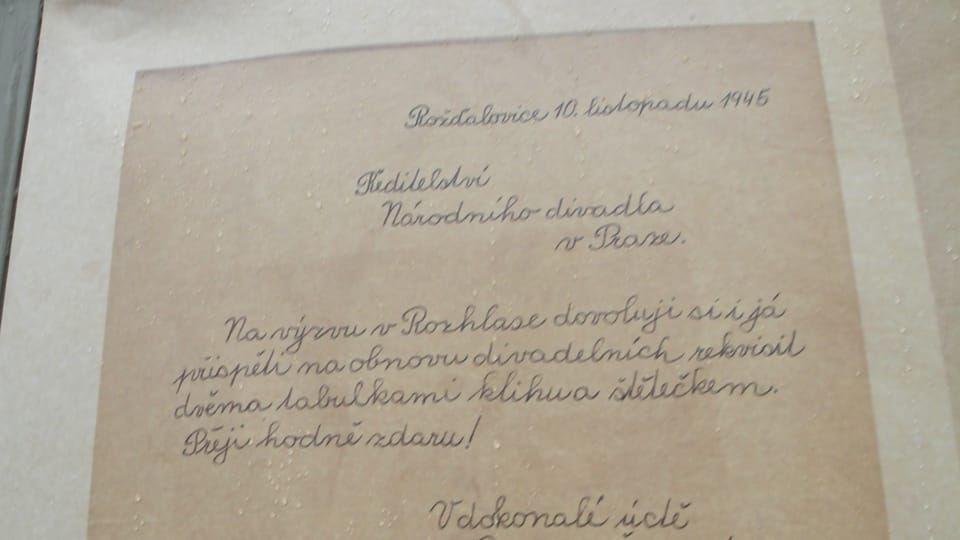 Rožďalovice 10. listopadu 1945
Ředitelství
Národního divadla
v Praze.
Na výzvu v Rozhlase dovoluji si i já
přispěti na obnovu divadelních rekvisit
dvěma tabulkami klihu a štětečkem.
Přeji hodně zdaru!
V dokonalé úctě